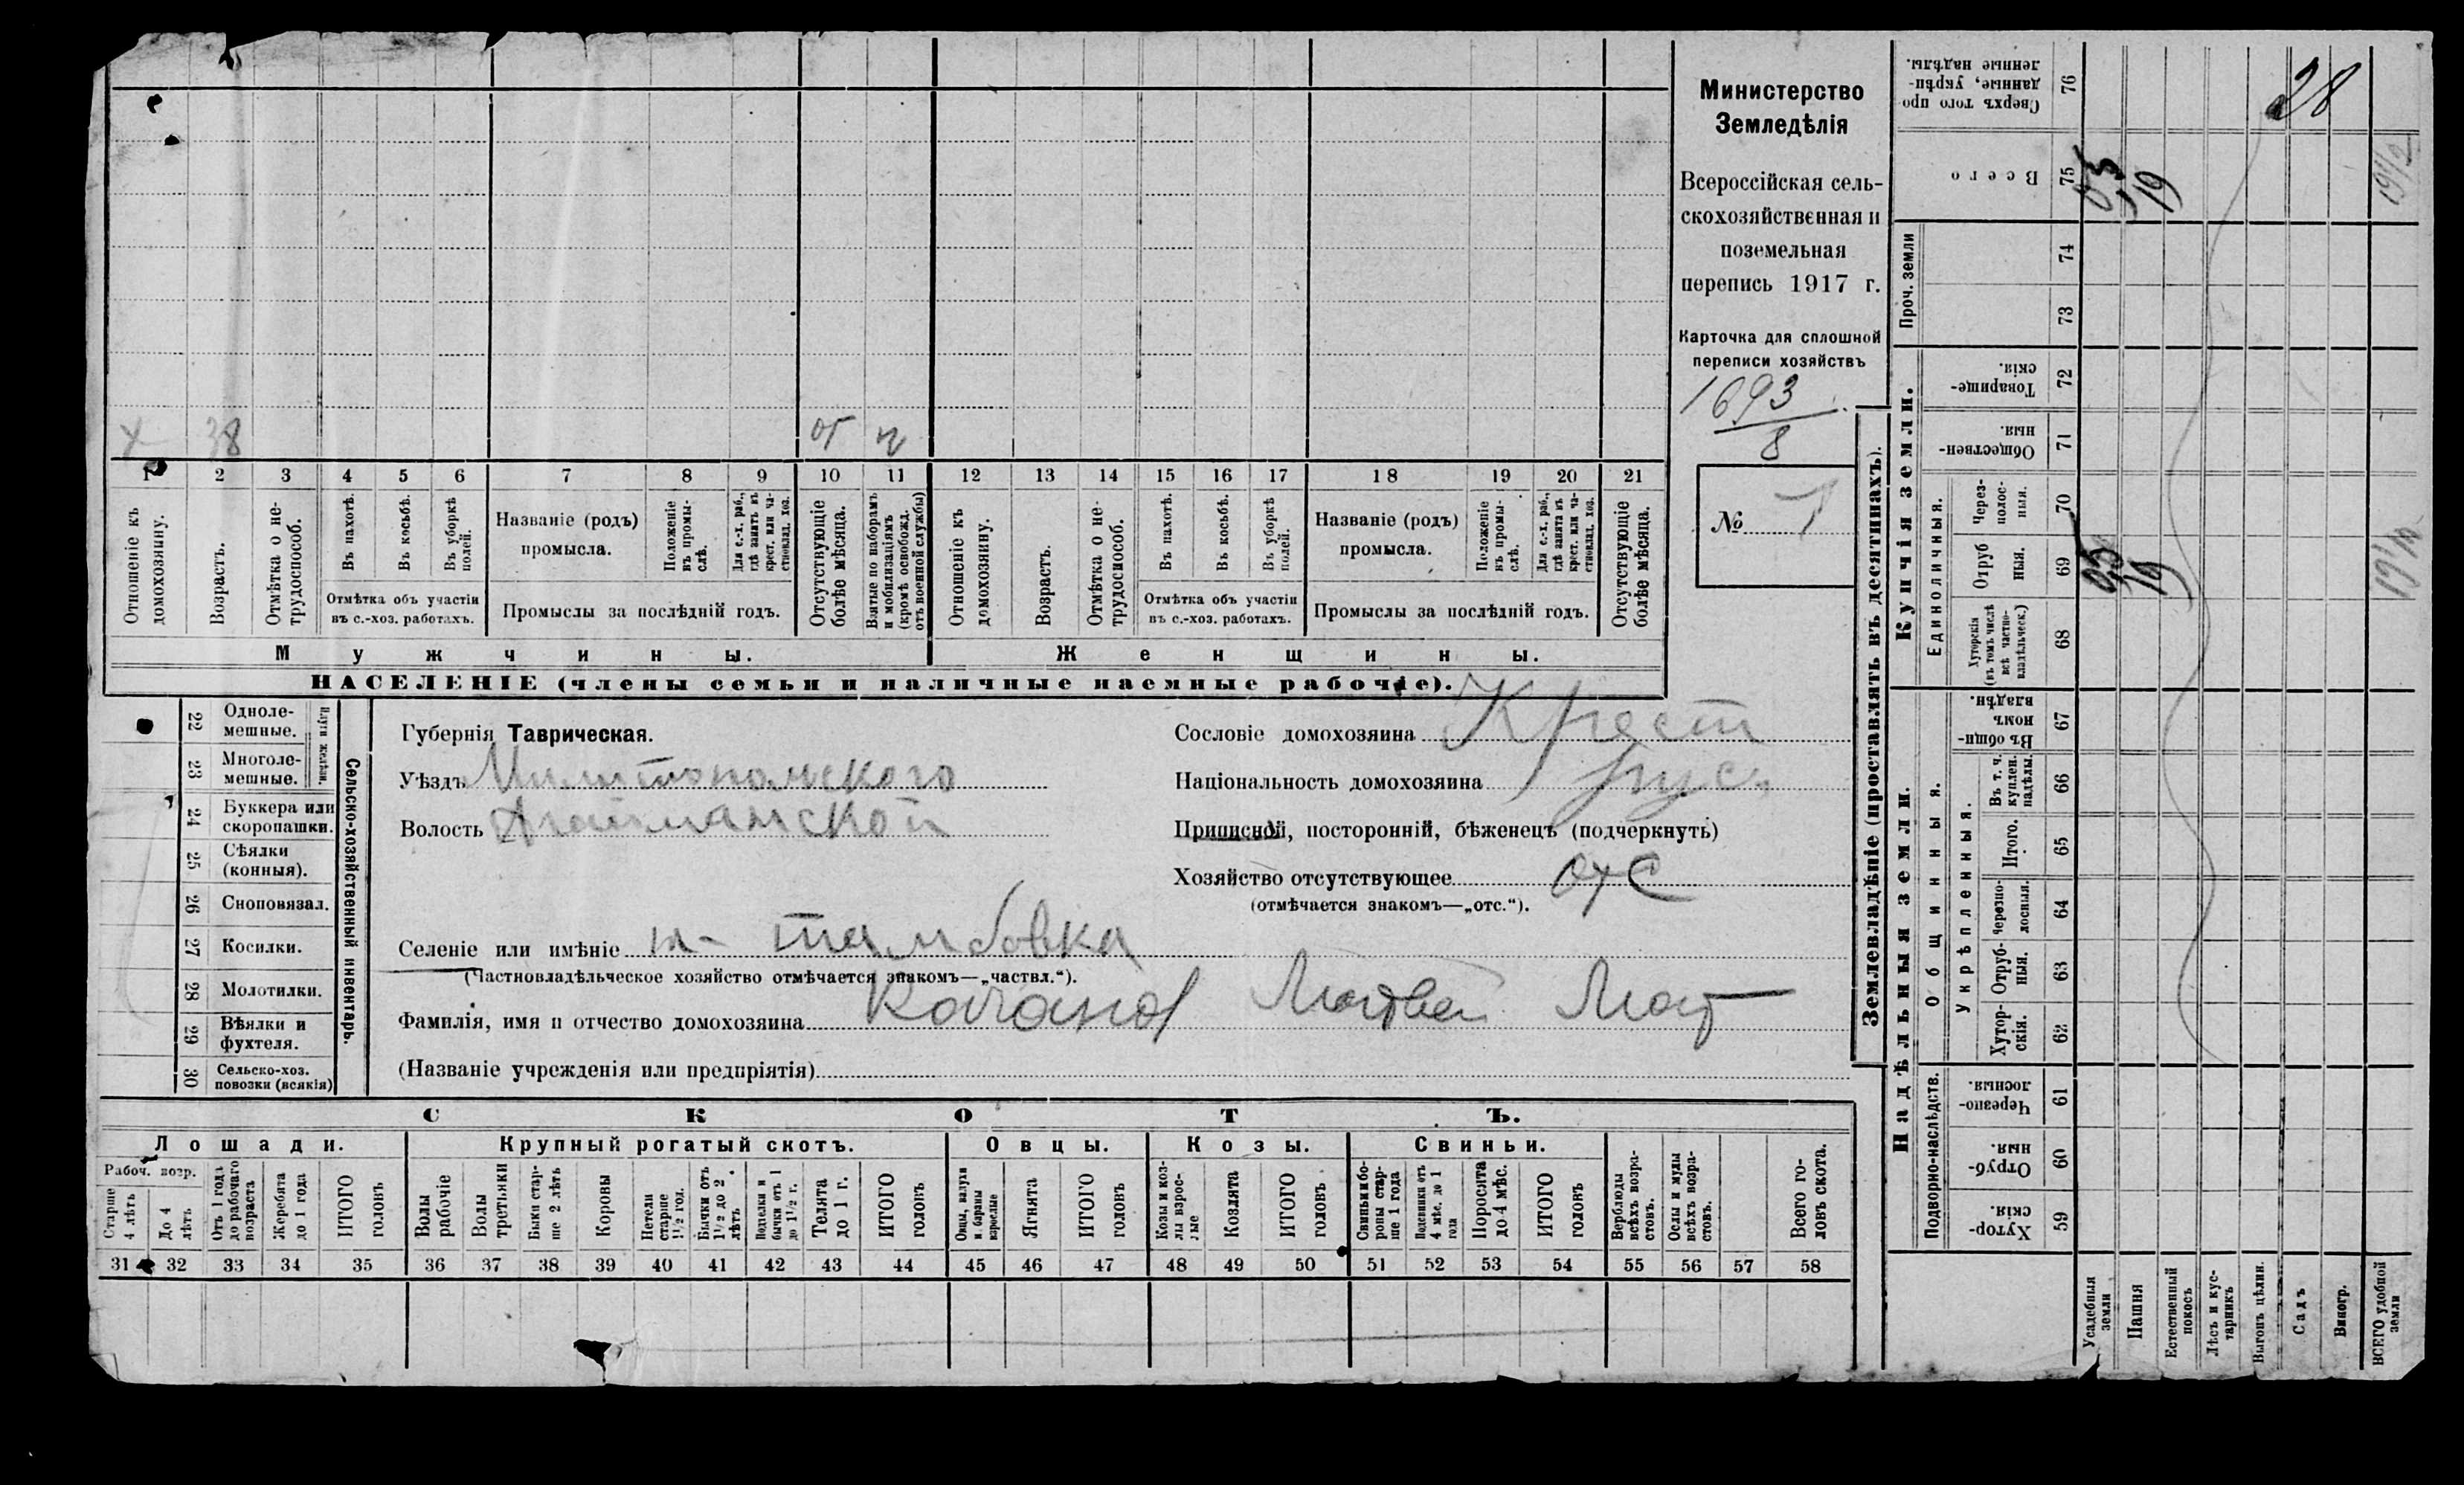 Министерство
Земледѣлія
Всероссійская сель-
скохозяйственная и
поземельная
перепись 1917 г.
Карточка для сплошной
переписи хозяйствъ
1693
8
№ 7
х 38 от
1 2 3 4 5 6 7 8 9 10 11 12 13 14 15 16 17 18 19 20 21
Отношеніе къ домохозяину.
Возрастъ.
Отмѣтка о не-
трудоспособ.
Въ пахотѣ.
Въ косьбѣ.
Въ уборкѣ
полей.
Отмѣтка объ участіи
въ с.-хоз. работахъ.
Названіе (родъ)
промысла.
Положеніе
въ промы-
слѣ.
Для с.-х. раб.,
гдѣ занятъ въ
крест. или ча-
стновлад. хоз.
Промыслы за послѣдній годъ.
Отсутствующіе
болѣе мѣсяца.
Взятые по наборамъ
и мобилизаціямъ
(кромѣ освобожд.
отъ военной службы)
Отношеніе къ
домохозяину.
Возрастъ.
Отмѣтка о не-
трудоспособ.
Въ пахотѣ.
Въ косьбѣ.
Въ уборкѣ
полей.
Отмѣтка объ участіи
въ с.-хоз. работахъ.
Названіе (родъ)
промысла.
Положеніе
въ промы-
слѣ.
Для с.-х. раб.,
гдѣ занята въ
крест. или ча-
стновлад. хоз.
Промыслы за послѣдній годъ.
Отсутствующіе
болѣе мѣсяца.
Мужчины. Женщины.
НАСЕЛЕНІЕ (члены семьи и наличные наемные рабочіе).
Сельско-хозяйственный инвентарь.
Плуги желѣзн.
22 Одноле-
мешные.
23 Многоле-
мешные.
24 Буккера или
скоропашки.
25 Сѣялки
(конныя).
26 Сноповязал.
27 Косилки.
28 Молотилки.
29 Вѣялки и
фухтеля.
30 Сельско-хоз.
повозки (всякія)
Губернія Таврическая.
Уѣздъ Мелитопольского
Волость Агайманской
Селеніе или имѣніе Тамбовка
(Частновладѣльческое хозяйство отмѣчается знакомъ—„частвл.“).
Фамилія, имя и отчество домохозяина Качанов Матвей Мат
(Названіе учрежденія или предпріятія)
Сословіе домохозяина Крест
Національность домохозяина рус.
Приписной, посторонній, бѣженецъ (подчеркнуть)
Хозяйство отсутствующее отс
(отмѣчается знакомъ—„отс.“).
СКОТЪ.
Лошади. Крупный рогатый скотъ. Овцы. Козы. Свиньи.
Рабоч. возр.
Старше
4 лѣтъ
До 4
лѣтъ
Отъ 1 года
до рабочаго
возраста
Жеребята
до 1 года
ИТОГО
головъ
Волы
рабочіе
Волы
третьяки
Быки стар-
ше 2 лѣтъ
Коровы
Нетели
старше
1½ год.
Бычки отъ
1½ до 2
лѣтъ
Подтелки и
бычки отъ 1
до 1½ г.
Телята
до 1 г.
ИТОГО
головъ
Овцы, валухи
и бараны
взрослые
Ягнята
ИТОГО
головъ
Козы и коз-
лы взрос-
лые
Козлята
ИТОГО
головъ
Свиньи и бо-
ровы стар-
ше 1 года
Подсвинки отъ
4 мѣс. до 1
года
Поросята
до 4 мѣс.
ИТОГО
головъ
Верблюды
всѣхъ возра-
стовъ.
Ослы и мулы
всѣхъ возра-
стовъ.
Всего го-
ловъ скота.
31 32 33 34 35 36 37 38 39 40 41 42 43 44 45 46 47 48 49 50 51 52 53 54 55 56 57 58
Землевладѣніе (проставлять въ десятинахъ).
Надѣльныя земли. Купчія земли. Проч. земли
Подворно-наслѣдств.
Общинныя.
Укрѣпленныя.
Единоличныя.
Хутор-
скія. 59
Отруб-
ныя. 60
Черезпо-
лосныя. 61
Хутор-
скія. 62
Отруб-
ныя. 63
Черезпо-
лосныя. 64
Итого. 65
Въ т. ч.
куплен.
надѣлы. 66
Въ общи-
номъ
владѣн. 67
Хуторскія
(въ томъ числѣ
всѣ частно-
владѣльческ.) 68
Отруб
ныя. 69
Через-
полос-
ныя. 70
Обществен-
ныя. 71
Товарище-
скія. 72
73 74
Всего 75
Сверхъ того про
данные, укрѣп-
ленные надѣлы. 76
Усадебныя
земли
Пашня
Естественный
покосъ
Лѣсъ и кус-
тарникъ
Выгонъ цѣлин.
Садъ
Виногр.
ВСЕГО удобной
земли
0,5 19 19½
0,5 19 19½
28